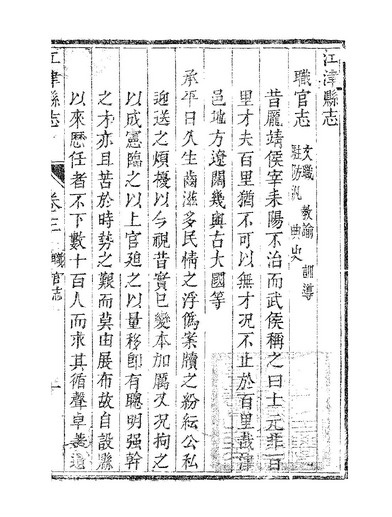 江津縣志
職官志 文職 教諭 訓導
駐防汛 典史
昔龐靖侯宰耒陽不治而武侯稱之曰士元非百
里才夫百里猶不可以無才況不止於百里哉津
邑地方遼闊幾與古大國等
承平日久生齒滋多民情之浮僞案牘之紛紜公私
迎送之煩擾以今視昔實已變本加厲又況拘之
以成憲臨之以上官迫之以量移卽有聰明强幹
之才亦且苦於時勢之艱而莫由展布故自設縣
以來歷任者不下數十百人而求其循聲卓著遺
江津縣志 卷三 職官志 一